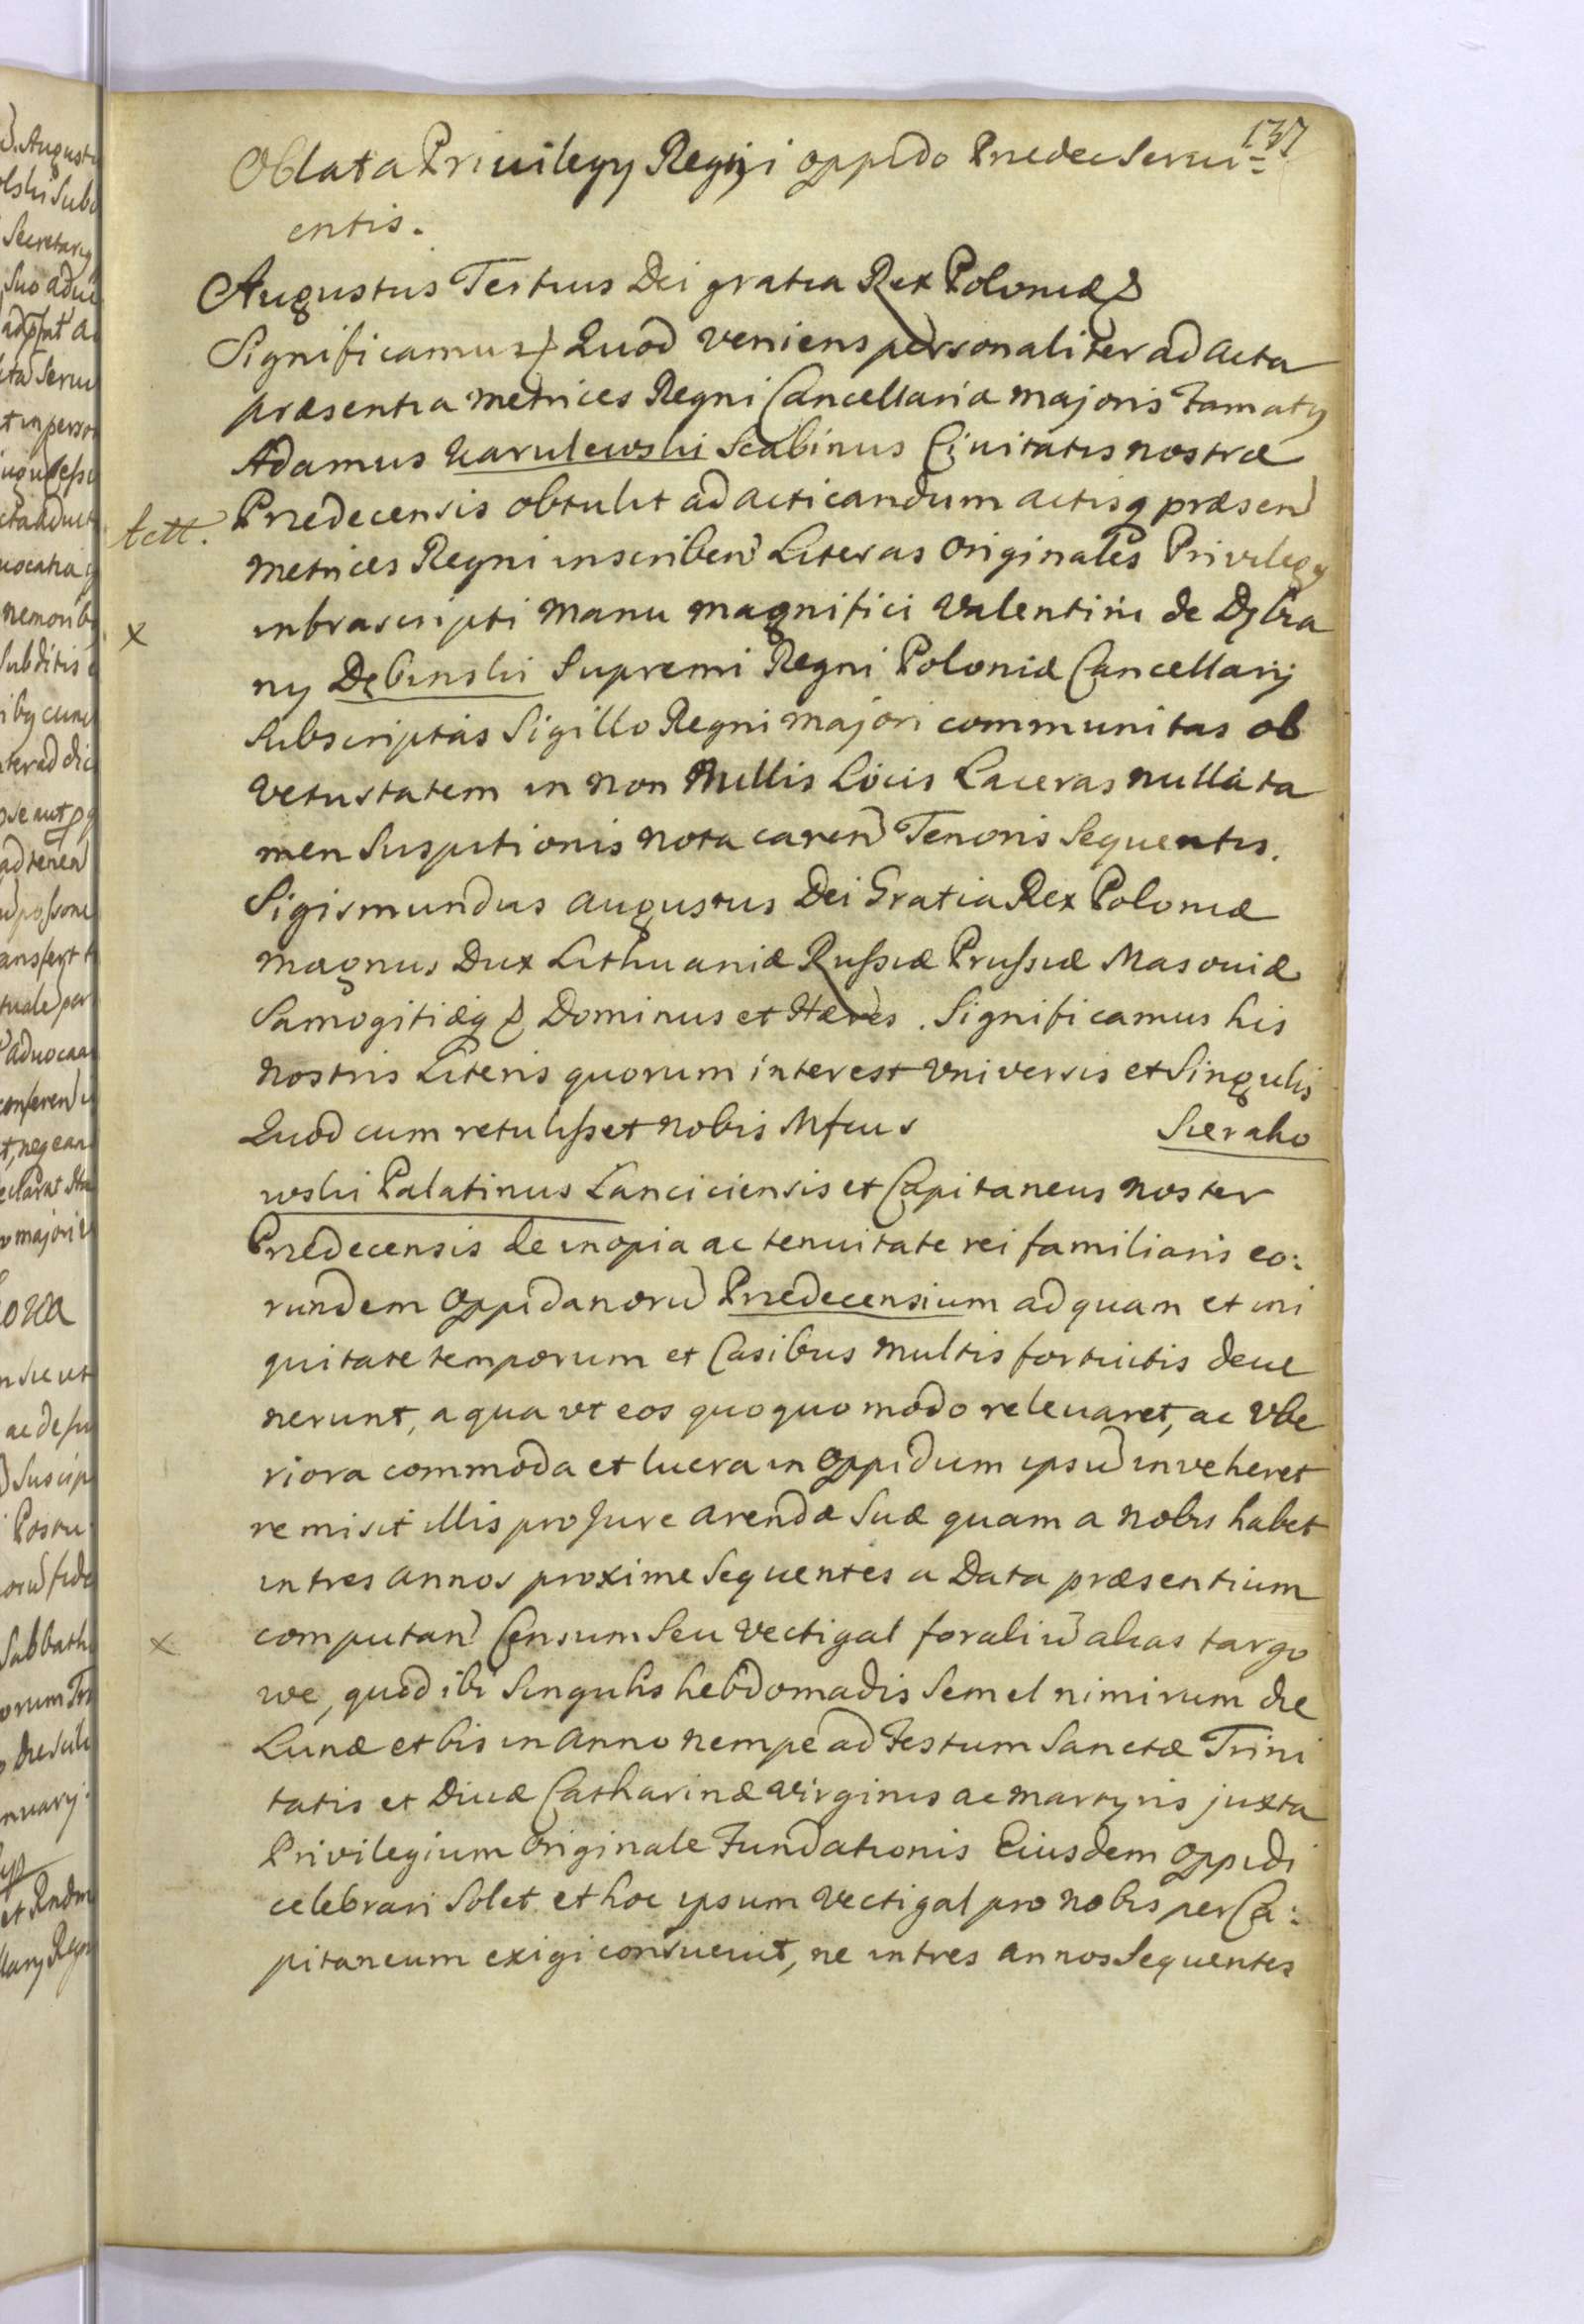 137
Oblata Privilegy Regij oppido Przedec Servi=
entis.
Augustus Tertius Dei gratia Rex Poloniæ &
Significamus & Quod veniens personaliter ad acta
præsentia metrices Regni Cancellariæ majoris Famatq
Adamus Karulewski Scabinus Civitatis nostræ
Przedecensis obtulit ad acticandum actisq præsen
metrices Regni inscriben Literas Originales Privilegy
inbrascripti manu magnifici Valentini de Dębia
ny Dębinski Supremi Regni Poloniæ Cancellarij
subscriptas Sigillo Regni majori communitas ob
vetustatem in non Nullis Locis Laceras nulla ta
men Suspitionis nota caren Tenoris Sequentis.
Sigismundus augustus Dei Gratia Rex Poloniæ
magnus Dux Lithuaniæ Russiæ Prussiæ Masoviæ
Samogitiæq & Dominus et Hæres. Significamus his
nostris Literis quorum interest Vniversis et Singulis
Quod cum retulisset nobis Mfcus Sierako
wski Palatinus Lanciciensis et Capitaneus noster
Przedecensis de inopia ac tenuitate rei familiaris eo:
rundem Oppidanoru Przedecensium ad quam et ini
quitate temporum et Casibus multis fortuitis deve
nerunt, a qua vt eos quoquo modo relevaret, ac Vbe
riora commoda et lucra in Oppidum ipsu inveheret
remisit illis pro Jure arendæ Suæ quam a nobis habet
in tres annos proxime Sequentes a Data præsentium
computan Censum Seu Vectigal foraliu alias targo
we, quod ibi Singulis hebdomadis Semel nimirum die
Lunæ et bis in anno nempe ad Festum Sanctæ Trini
tatis et Divæ Catharinæ Virginis ac martyris juxta
Privilegium Originale Fundationis Eiusdem Oppidi
celebrari Solet et hoc ipsum Vectigal pro nobis per Ca:
pitaneum exigi consuevit, ne in tres annos Sequentes